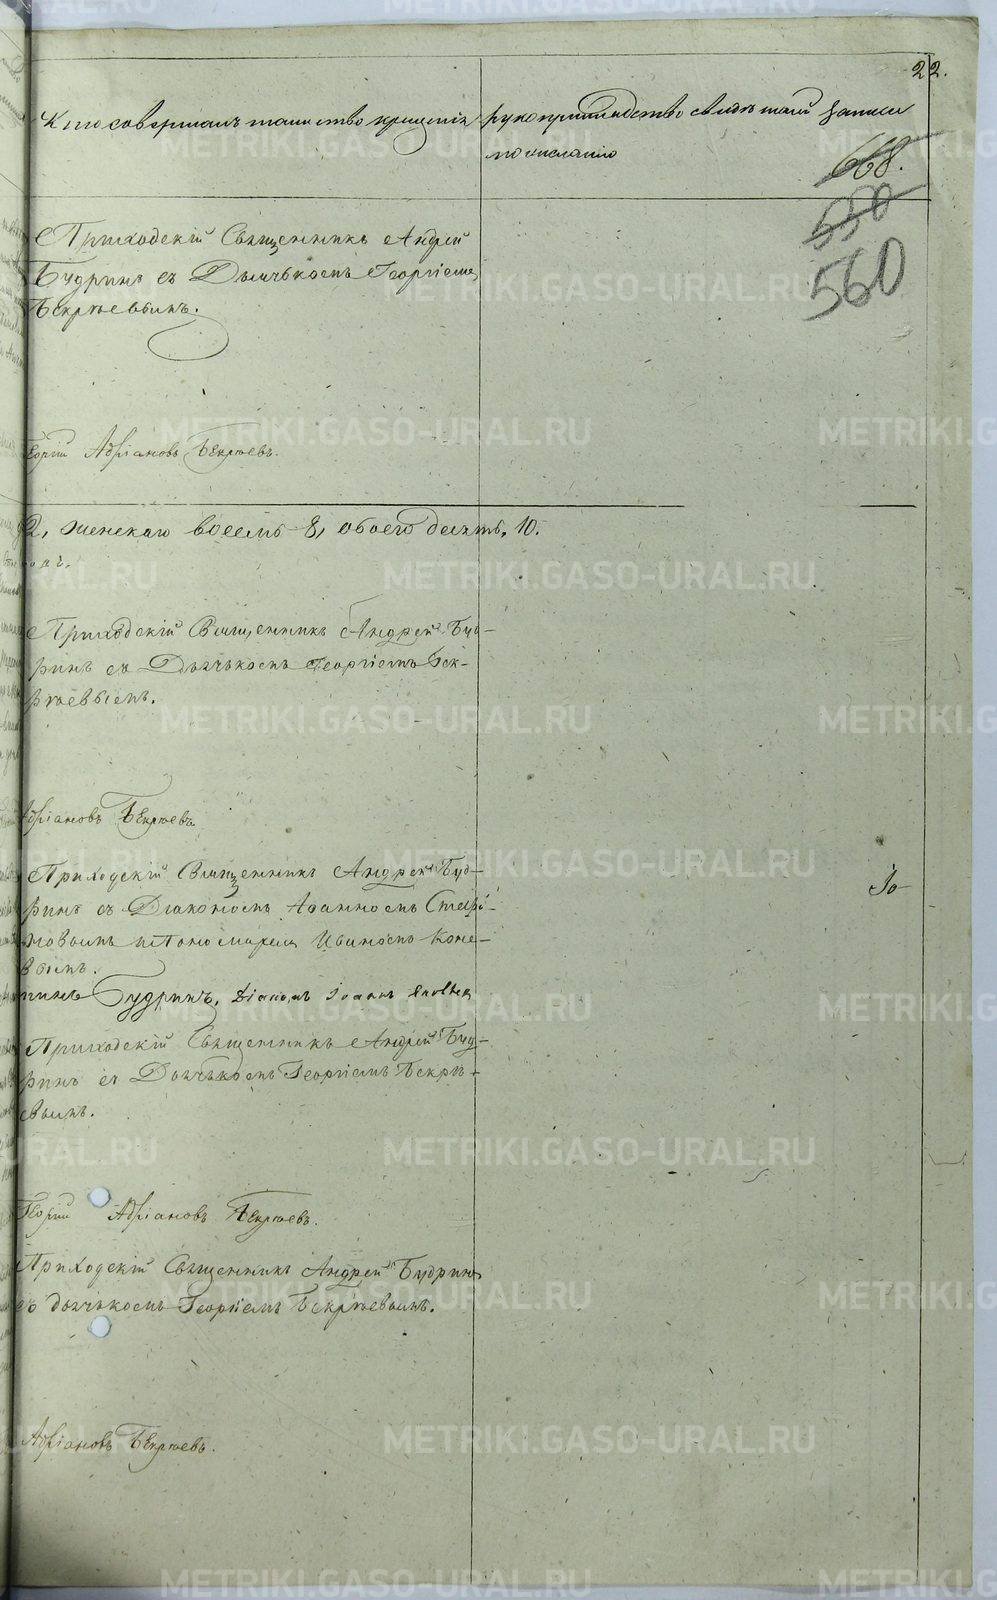 22.
Кто совершалъ таинство крещенія
рукоприкладство свидѣтелей записи
по желанію
668.
550
560
Приходскій Священникъ Андрей
Будринъ съ Дьячькомъ Георгіемъ
Бекряевымъ.
Георгій Адріановъ Бекряевъ.
2, женскаго восемь 8, обоего десять, 10.
Приходскій Священникъ Андрей Буд-
ринъ съ Дьячькомъ Георгіемъ Бек-
ряевымъ.
Адріановъ Бекряевъ
Приходскій Священникъ Андрей Буд-
ринъ съ Діакономъ Іоанномъ
и Пономаремъ Иваномъ Коне-
вымъ.
Будринъ, Діаконъ Іоаннъ
Приходскій Священникъ Андрей Буд-
ринъ съ Дьячькомъ Георгіемъ Бекря-
евымъ.
Георгій Адріановъ Бекряевъ.
Приходскій Священникъ Андрей Будринъ
съ дьячькомъ Георгіемъ Бекряевымъ.
Адріановъ Бекряевъ.
METRIKI.GASO-URAL.RU